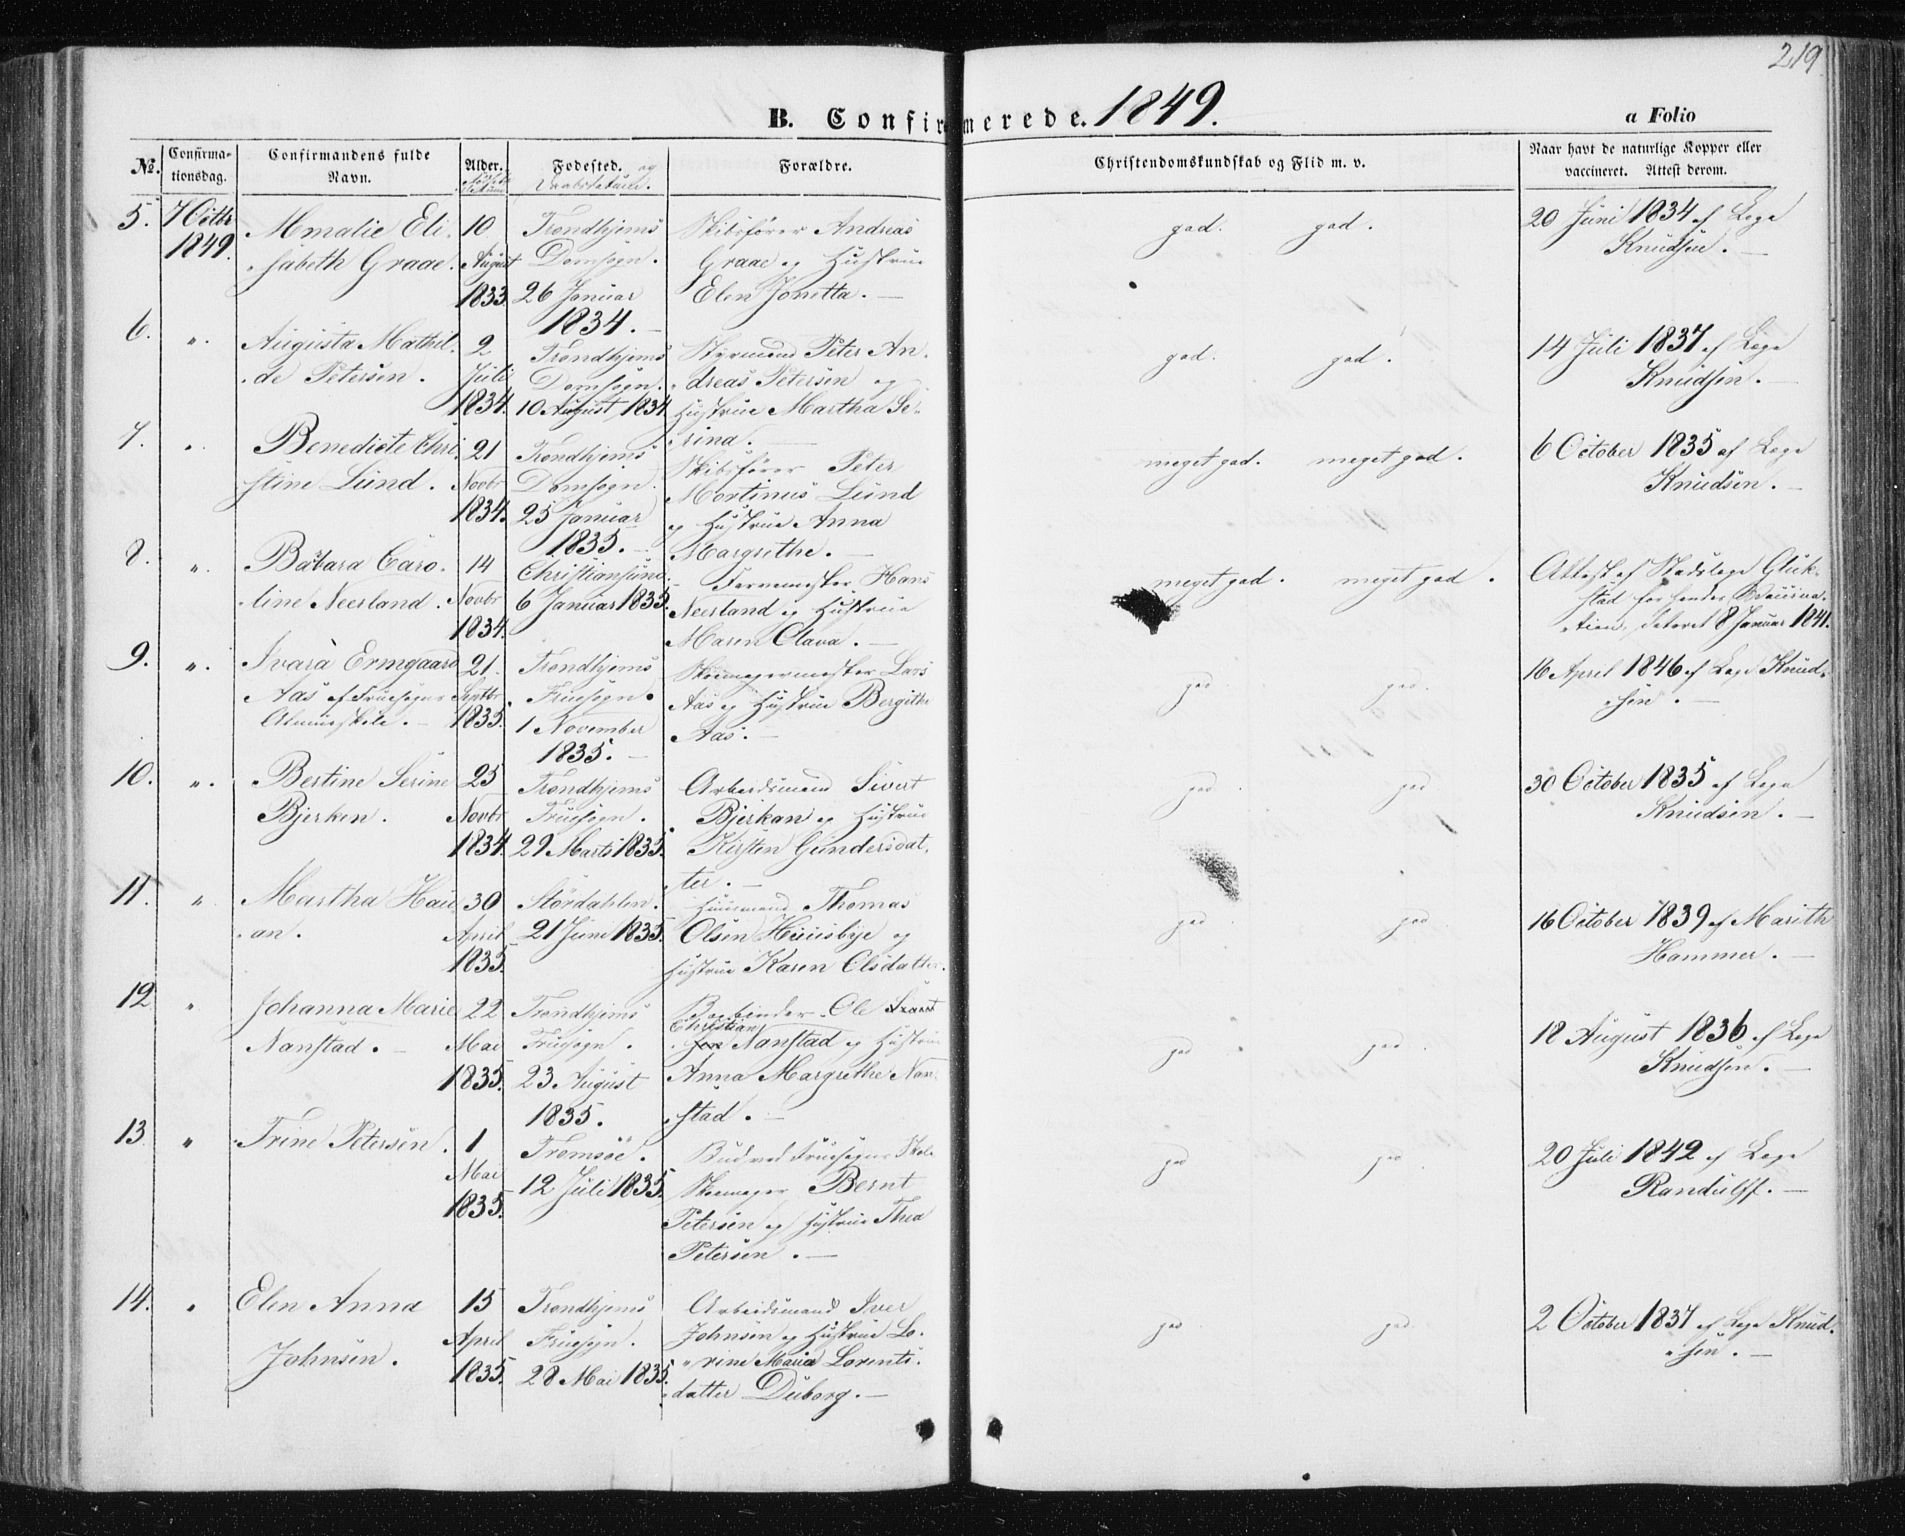 219
B. Confirmerede. 1849.
a Folio
No. Confirmationsdag. Confirmandens fulde Navn. Alder. Fodested. og Daabsdatum. Forældre. Christendomskundskab og Flid m. v. Naar havt de naturlige Kopper eller vaccineret. Attest derom.
5. 7 Octbr 1849.
Amalie Eli-
sabeth Graae.
10 August 1833.
Trondhjems
Domsogn.
26 Januar
1834.
Skibsfører Andreas
Graae og Hustrue
Elen Jonetta.
god. god.
20 Juni 1834 af Læge
Knudsen.
6. "
Augusta Mathil-
de Petersen.
2 Juli 1834.
Trondhjems
Domsogn.
10 August 1834.
Styrmand Peter An-
dreas Petersen og
Hustrue Martha Se-
rina.
god. god.
14 Juli 1837 af Læge
Knudsen.
7. "
Benedicte Chri-
stine Lund.
21 Novbr 1834.
Trondhjems
Domsogn.
25 Januar
1835.
Skibsfører Peter
Mortinus Lund
og Hustrue Anna
Margrethe.
meget god. meget god.
6 October 1835 af Læge
Knudsen.
8. "
Barbara Caro-
line Neerland.
14 Novbr 1834.
Christiansund
6 Januar 1835.
Farvemester Hans
Neerland og Hustrue
Maren Olava.
meget god. meget god.
Attest af Stadslæge Gluk-
stad for hendes Vaccina-
tion, dateret 8 Januar 1841.
9. "
Ivara Ermgaard
Aas af Fruesogns
Almueskole.
21 Septbr 1835.
Trondhjems
Fruesogn.
1 November
1835.
Skomagermester Lars
Aas og Hustrue Bergithe
Aas.
god god.
16 April 1846 af Læge Knud-
sen.
10. "
Bertine Serine
Bjerken.
25 Novbr 1834.
Trondhjems
Fruesogn.
29 Marts 1835.
Arbeidsmand Sivert
Bjerkan og Hustrue
Kirsten Gundersdat-
ter.
god god
30 October 1835 af Læge
Knudsen.
11. "
Martha Hau-
an.
30 April 1835.
Stördahlen.
21 Juni 1835.
Huusmand Thomas
Olsen Huusbye og
Hustrue Karen Olsdatter.
god god.
16 October 1839 af Marith
Hammer.
12. "
Johanna Marie
Nanstad.
22 Mai 1835.
Trondhjems
Fruesogn.
23 August
1835.
Bogbinder Ole
Christian
Nanstad og Hustrue
Anna Margrethe Nan-
stad.
god god.
18 August 1836 af Læge
Knudsen.
13. "
Trine Petersen.
1 Mai 1835.
Tromsöe.
12 Juli 1835.
Bud ved Fruesogns Skole
Skomager Bernt
Petersen og Hustrue Thea
Petersen.
god god.
20 Juli 1842 af Læge
Randulff.
14. "
Elen Anna
Johnsen.
15 April 1835.
Trondhjems
Fruesogn.
28 Mai 1835.
Arbeidsmand Iver
Johnsen og Hustrue Lo-
rine Maria Lorents-
datter Duborg.
god god.
2 October 1837 af Læge Knud-
sen.